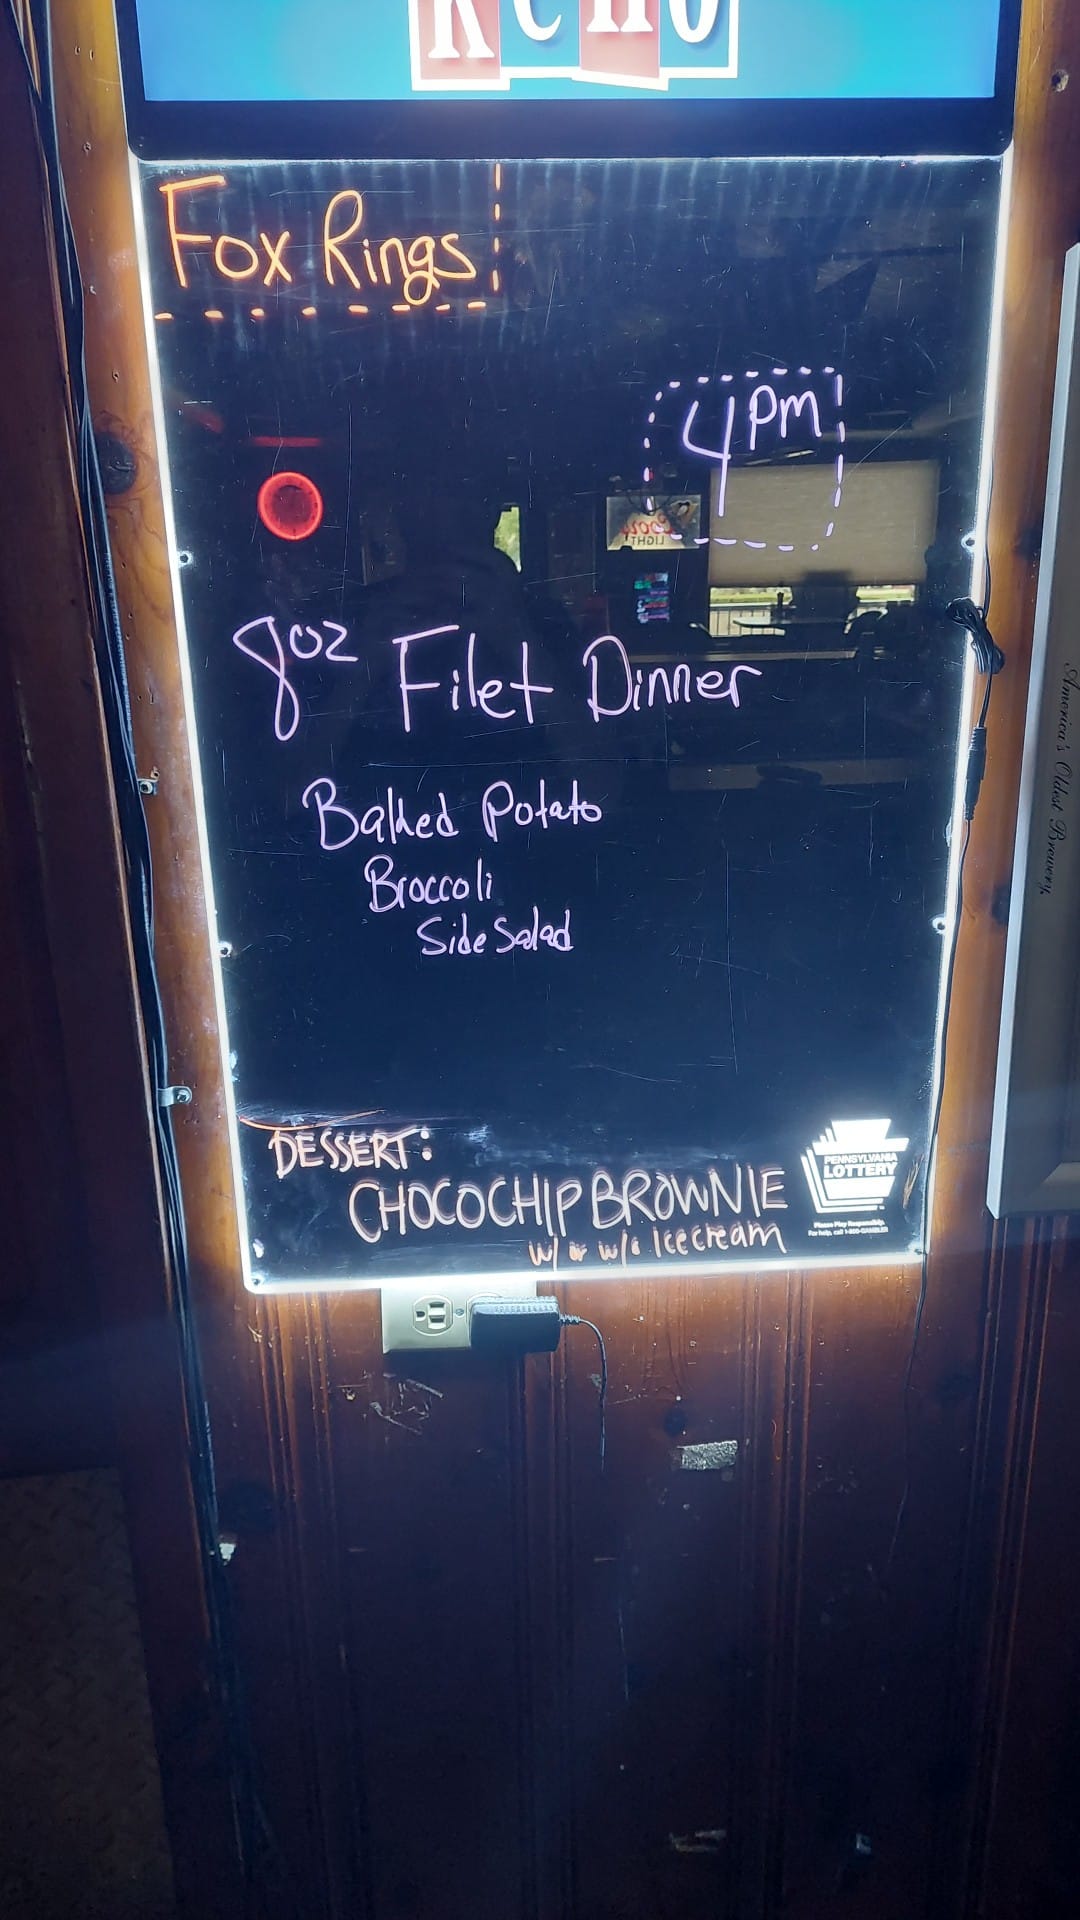 Keno
Fox Rings
4 PM
8oz Filet Dinner
Baked Potato
Broccoli
Side Salad
DESSERT:
CHOCOCHIP BROWNIE
w/ or w/o icecream
PENNSYLVANIA
LOTTERY
Please Play Responsibly.
For help, call 1-800-GAMBLER
America's Oldest Brewery.
Coors
LIGHT